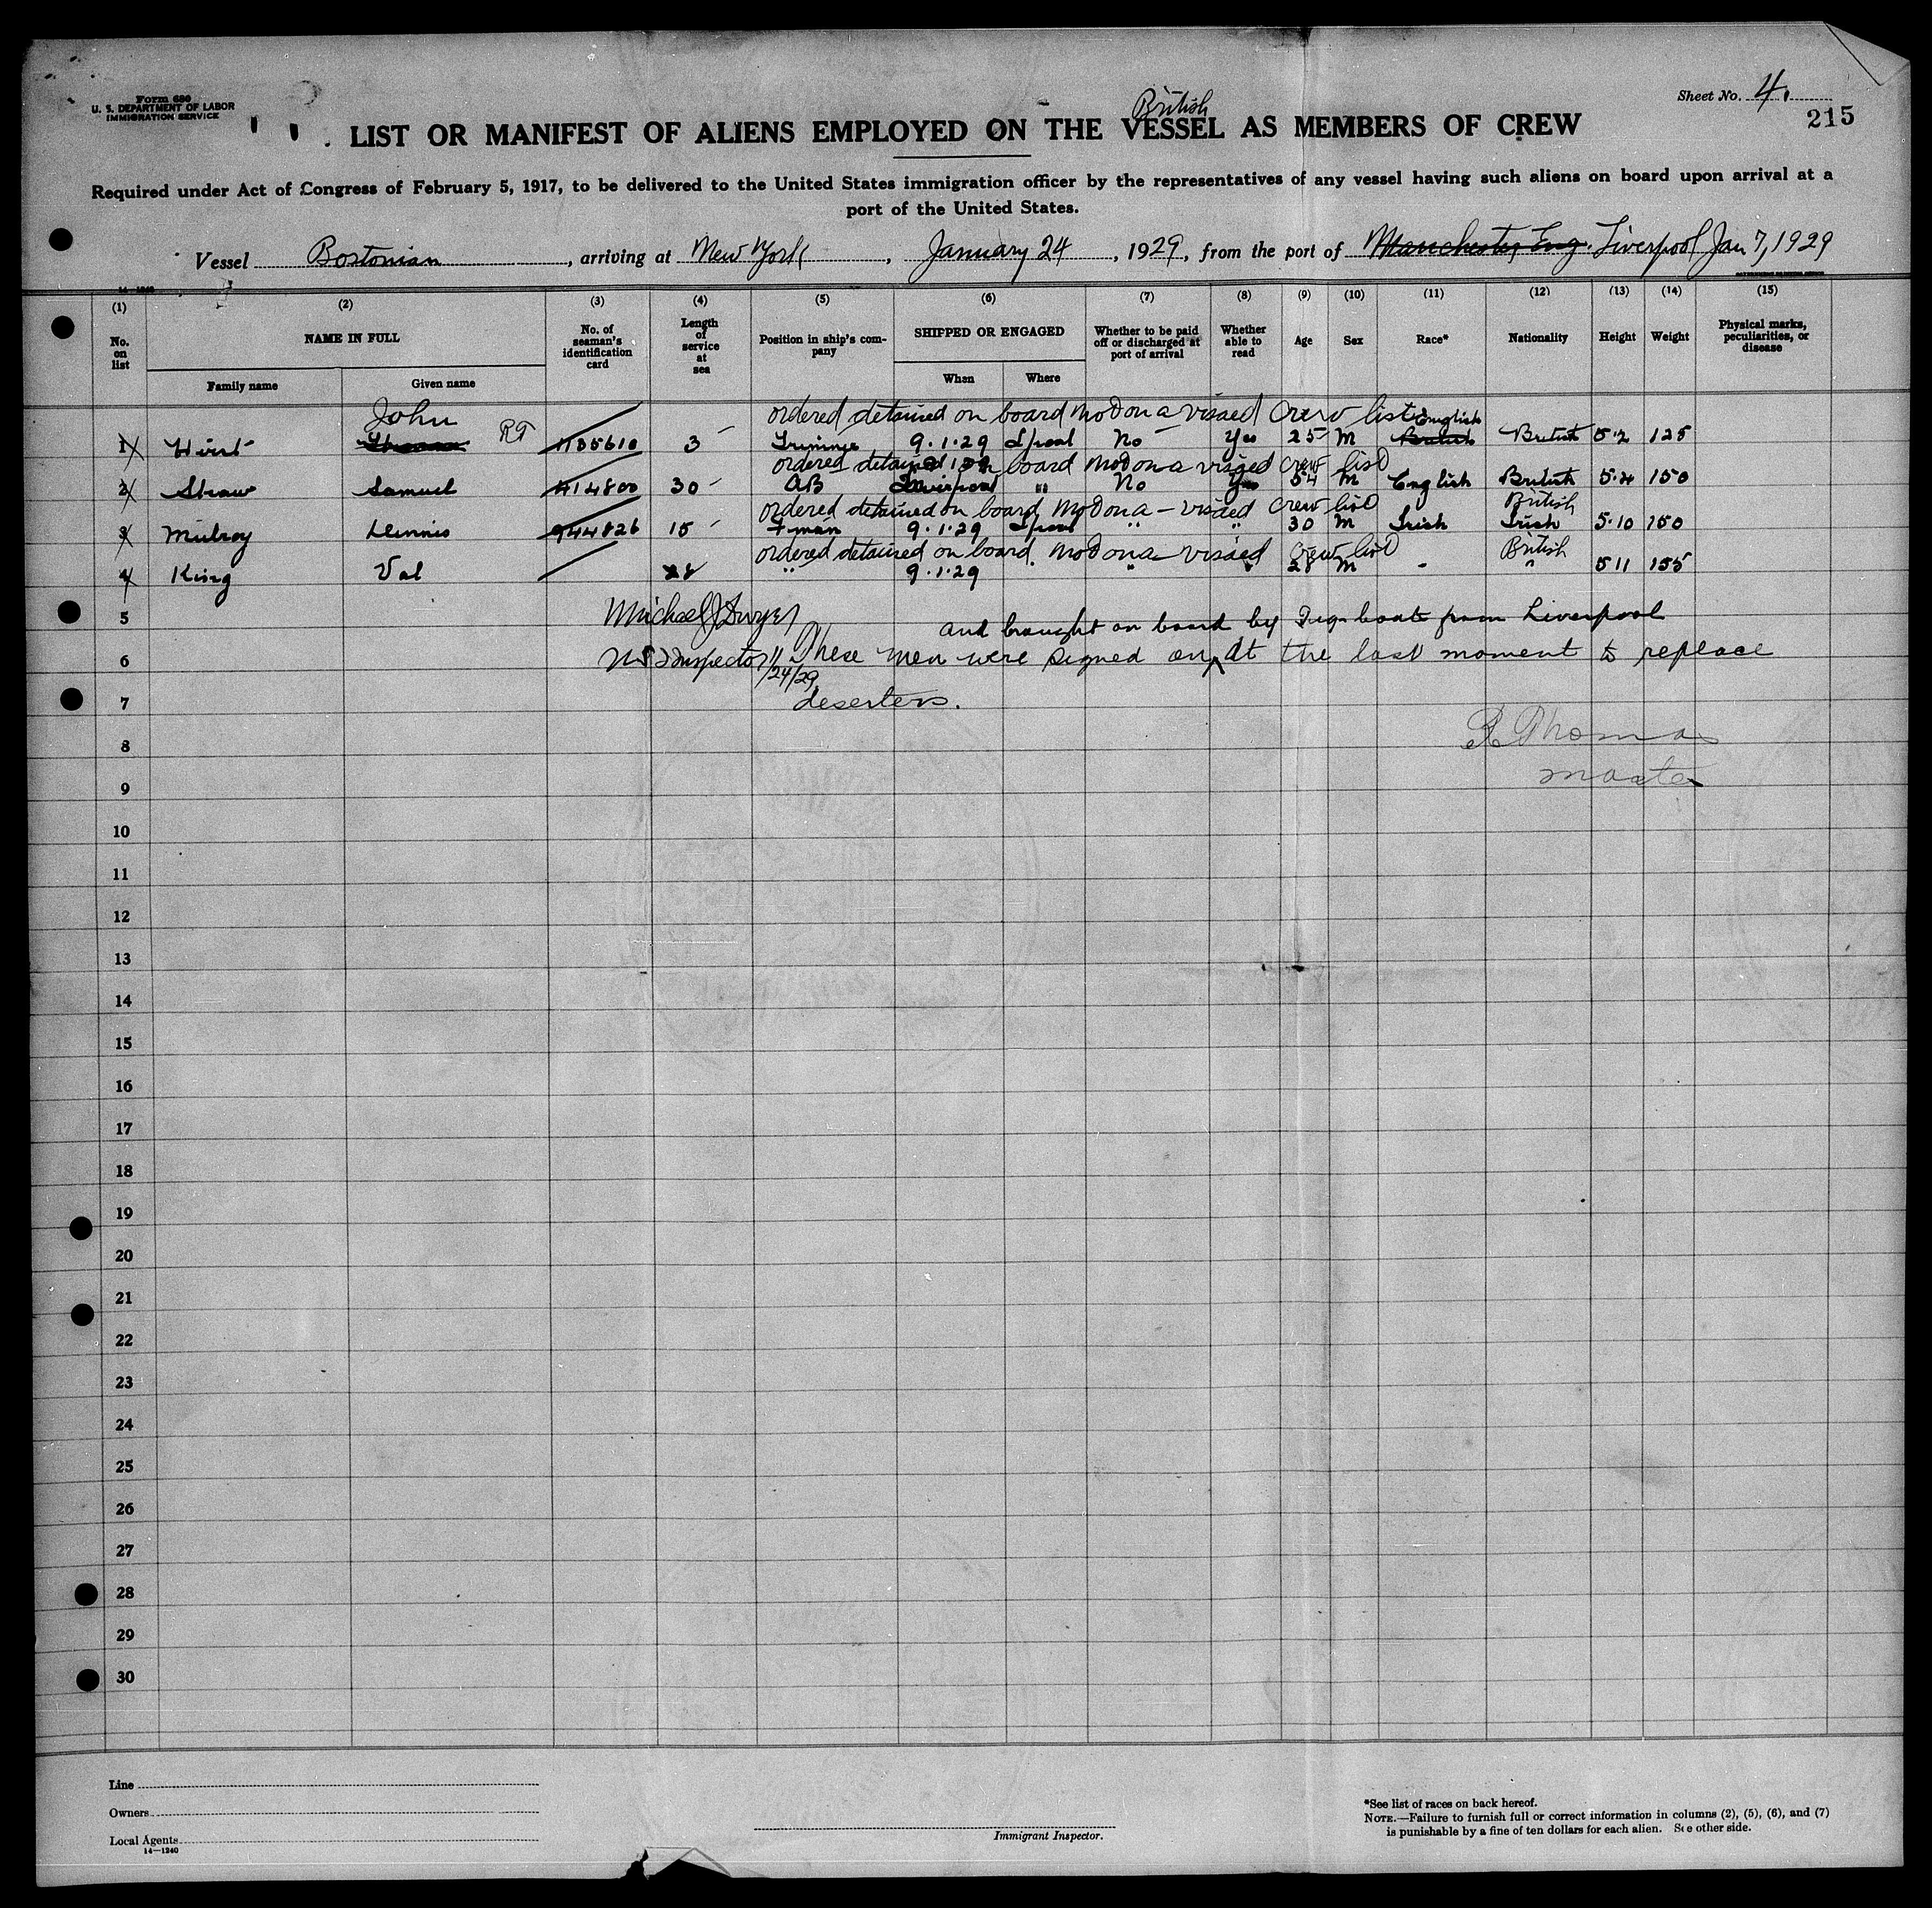 Form 680
U. S. DEPARTMENT OF LABOR
IMMIGRATION SERVICE
Sheet No. 4.
215
British
LIST OR MANIFEST OF ALIENS EMPLOYED ON THE VESSEL AS MEMBERS OF CREW
Required under Act of Congress of February 5, 1917, to be delivered to the United States immigration officer by the representatives of any vessel having such aliens on board upon arrival at a
port of the United States.
Vessel Bostonian, arriving at New York, January 24, 1929, from the port of Manchester, Eng. Liverpool Jan 7, 1929
(1) (2) (3) (4) (5) (6) (7) (8) (9) (10) (11) (12) (13) (14) (15)
No. on list NAME IN FULL No. of seaman's identification card Length of service at sea Position in ship's company SHIPPED OR ENGAGED Whether to be paid off or discharged at port of arrival Whether able to read Age Sex Race* Nationality Height Weight Physical marks, peculiarities, or disease
Family name Given name When Where
John ordered detained on board not on a visaed crew list English
1 Hirst RT 1135610 3 Trimmer 9.1.29 Lpool No Yes 25 M British British 5.2 125
ordered detained on board not on a visaed crew list
2 Shaw Samuel 414800 30 AB Liverpool " No Yes 54 M English British 5.4 150
ordered detained on board not on a visaed crew list British
3 Mulroy Dennis 944826 15 F-man 9.1.29 Lpool " " 30 M Irish Irish 5.10 150
ordered detained on board not on a visaed crew list British
4 King Val 28 " 9.1.29 " " 28 M " 5 11 155
5 Michael J Dwyer and brought on board by Tug boat from Liverpool
6 US Inspector These men were signed on at the last moment to replace
1/24/29
7 deserters.
8 Thomas
9 master
10
11
12
13
14
15
16
17
18
19
20
21
22
23
24
25
26
27
28
29
30
Line
Owners
Local Agents
14—1240
Immigrant Inspector.
*See list of races on back hereof.
NOTE.—Failure to furnish full or correct information in columns (2), (5), (6), and (7)
is punishable by a fine of ten dollars for each alien. See other side.